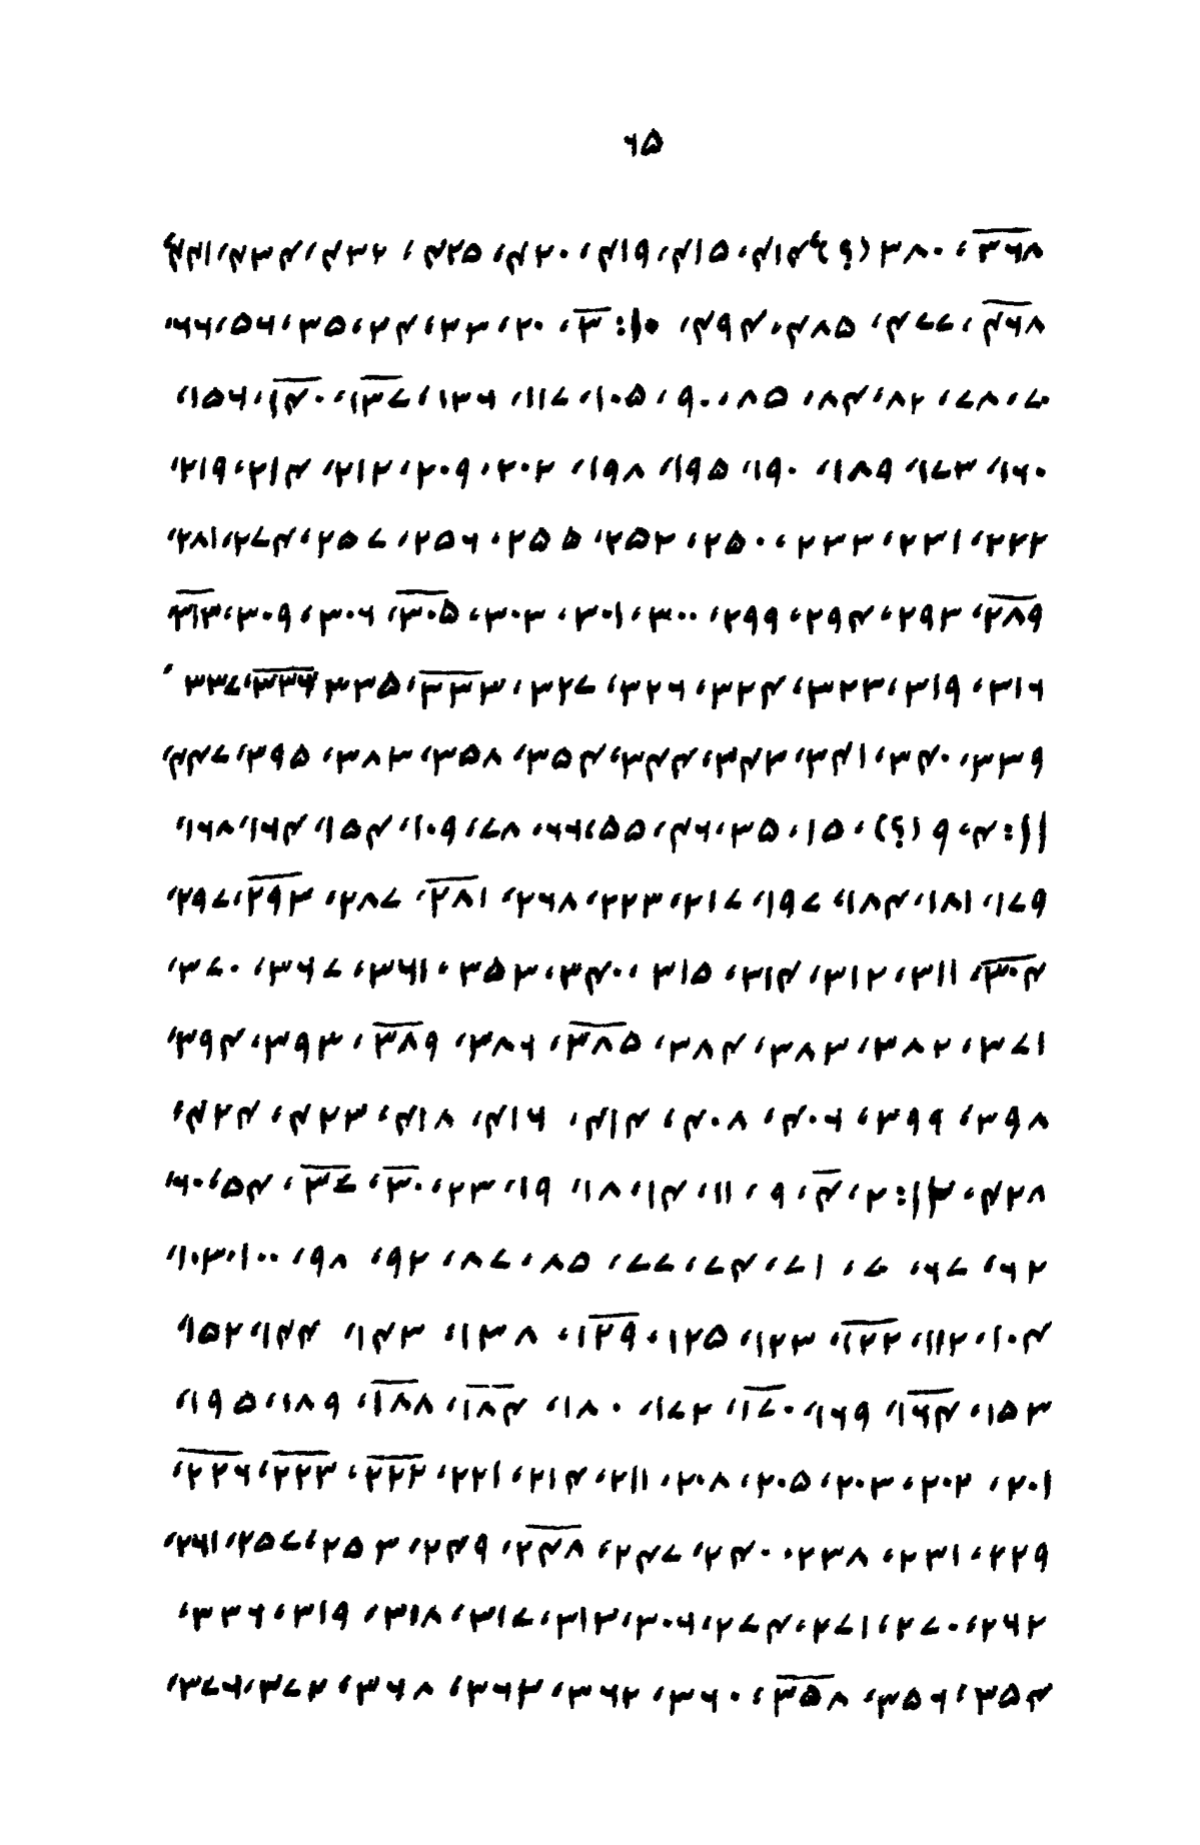 ۶۵
۳۶۸، ۳۸۰ (؟) ۴۱۴، ۴۱۵، ۴۱۹، ۴۲۰، ۴۲۵، ۴۳۲، ۴۳۴،
۴۶۸، ۴۷۷، ۴۸۵، ۴۹۴، ۱۰: ۳، ۲۰، ۲۳، ۲۴، ۳۵، ۵۶، ۶۶،
۷۰، ۷۸، ۸۲، ۸۴، ۸۵، ۹۰، ۱۰۵، ۱۱۷، ۱۳۶، ۱۳۷، ۱۴۰، ۱۵۶،
۱۶۰، ۱۷۳، ۱۸۹، ۱۹۰، ۱۹۵، ۱۹۸، ۲۰۲، ۲۰۹، ۲۱۲، ۲۱۴، ۲۱۹،
۲۲۲، ۲۳۱، ۲۳۳، ۲۵۰، ۲۵۲، ۲۵۵، ۲۵۶، ۲۵۷، ۲۷۴، ۲۸۱،
۲۸۹، ۲۹۳، ۲۹۴، ۲۹۹، ۳۰۰، ۳۰۱، ۳۰۳، ۳۰۵، ۳۰۶، ۳۰۹، ۳۱۳
۳۱۶، ۳۱۹، ۳۲۳، ۳۲۴، ۳۲۶، ۳۲۷، ۳۳۳، ۳۳۵ ۳۳۶، ۳۳۷،
۳۳۹، ۳۴۰، ۳۴۱، ۳۴۳، ۳۴۴، ۳۵۴، ۳۵۸، ۳۸۳، ۳۹۵، ۴۴۷،
۱۱: ۴، ۹ (؟)، ۱۵، ۳۵، ۴۶، ۵۵، ۶۶، ۷۸، ۱۰۹، ۱۵۴، ۱۶۴، ۱۶۸،
۱۷۹، ۱۸۱، ۱۸۴، ۱۹۷، ۲۱۷، ۲۲۳، ۲۶۸، ۲۸۱، ۲۸۷، ۲۹۳، ۲۹۷،
۳۰۴، ۳۱۱، ۳۱۲، ۳۱۴، ۳۱۵، ۳۴۰، ۳۵۳، ۳۶۱، ۳۶۷، ۳۷۰،
۳۷۱، ۳۸۲، ۳۸۳، ۳۸۴، ۳۸۵، ۳۸۶، ۳۸۹، ۳۹۳، ۳۹۴،
۳۹۸، ۳۹۹، ۴۰۶، ۴۰۸، ۴۱۴، ۴۱۶، ۴۱۸، ۴۲۳، ۴۲۴،
۴۲۸، ۱۲: ۲، ۴، ۹، ۱۱، ۱۴، ۱۸، ۱۹، ۲۳، ۳۰، ۳۷، ۵۴، ۶۰،
۶۲، ۶۷، ۷۰، ۷۱، ۷۴، ۷۷، ۸۵، ۸۷، ۹۲، ۹۸، ۱۰۰، ۱۰۳،
۱۰۴، ۱۱۲، ۱۲۲، ۱۲۳، ۱۲۵، ۱۲۹، ۱۳۸، ۱۴۳، ۱۴۴، ۱۵۲،
۱۵۳، ۱۶۴، ۱۶۹، ۱۷۰، ۱۷۲، ۱۸۰، ۱۸۴، ۱۸۸، ۱۸۹، ۱۹۵،
۲۰۱، ۲۰۲، ۲۰۳، ۲۰۵، ۲۰۸، ۲۱۱، ۲۱۴، ۲۲۱، ۲۲۲، ۲۲۳، ۲۲۶،
۲۲۹، ۲۳۱، ۲۳۸، ۲۴۰، ۲۴۷، ۲۴۸، ۲۴۹، ۲۵۳، ۲۵۷، ۲۶۱،
۲۶۲، ۲۷۰، ۲۷۱، ۲۷۴، ۳۰۶، ۳۱۳، ۳۱۷، ۳۱۸، ۳۱۹، ۳۳۶،
۳۵۴، ۳۵۶، ۳۵۸، ۳۶۰، ۳۶۲، ۳۶۳، ۳۶۸، ۳۷۲، ۳۷۶،